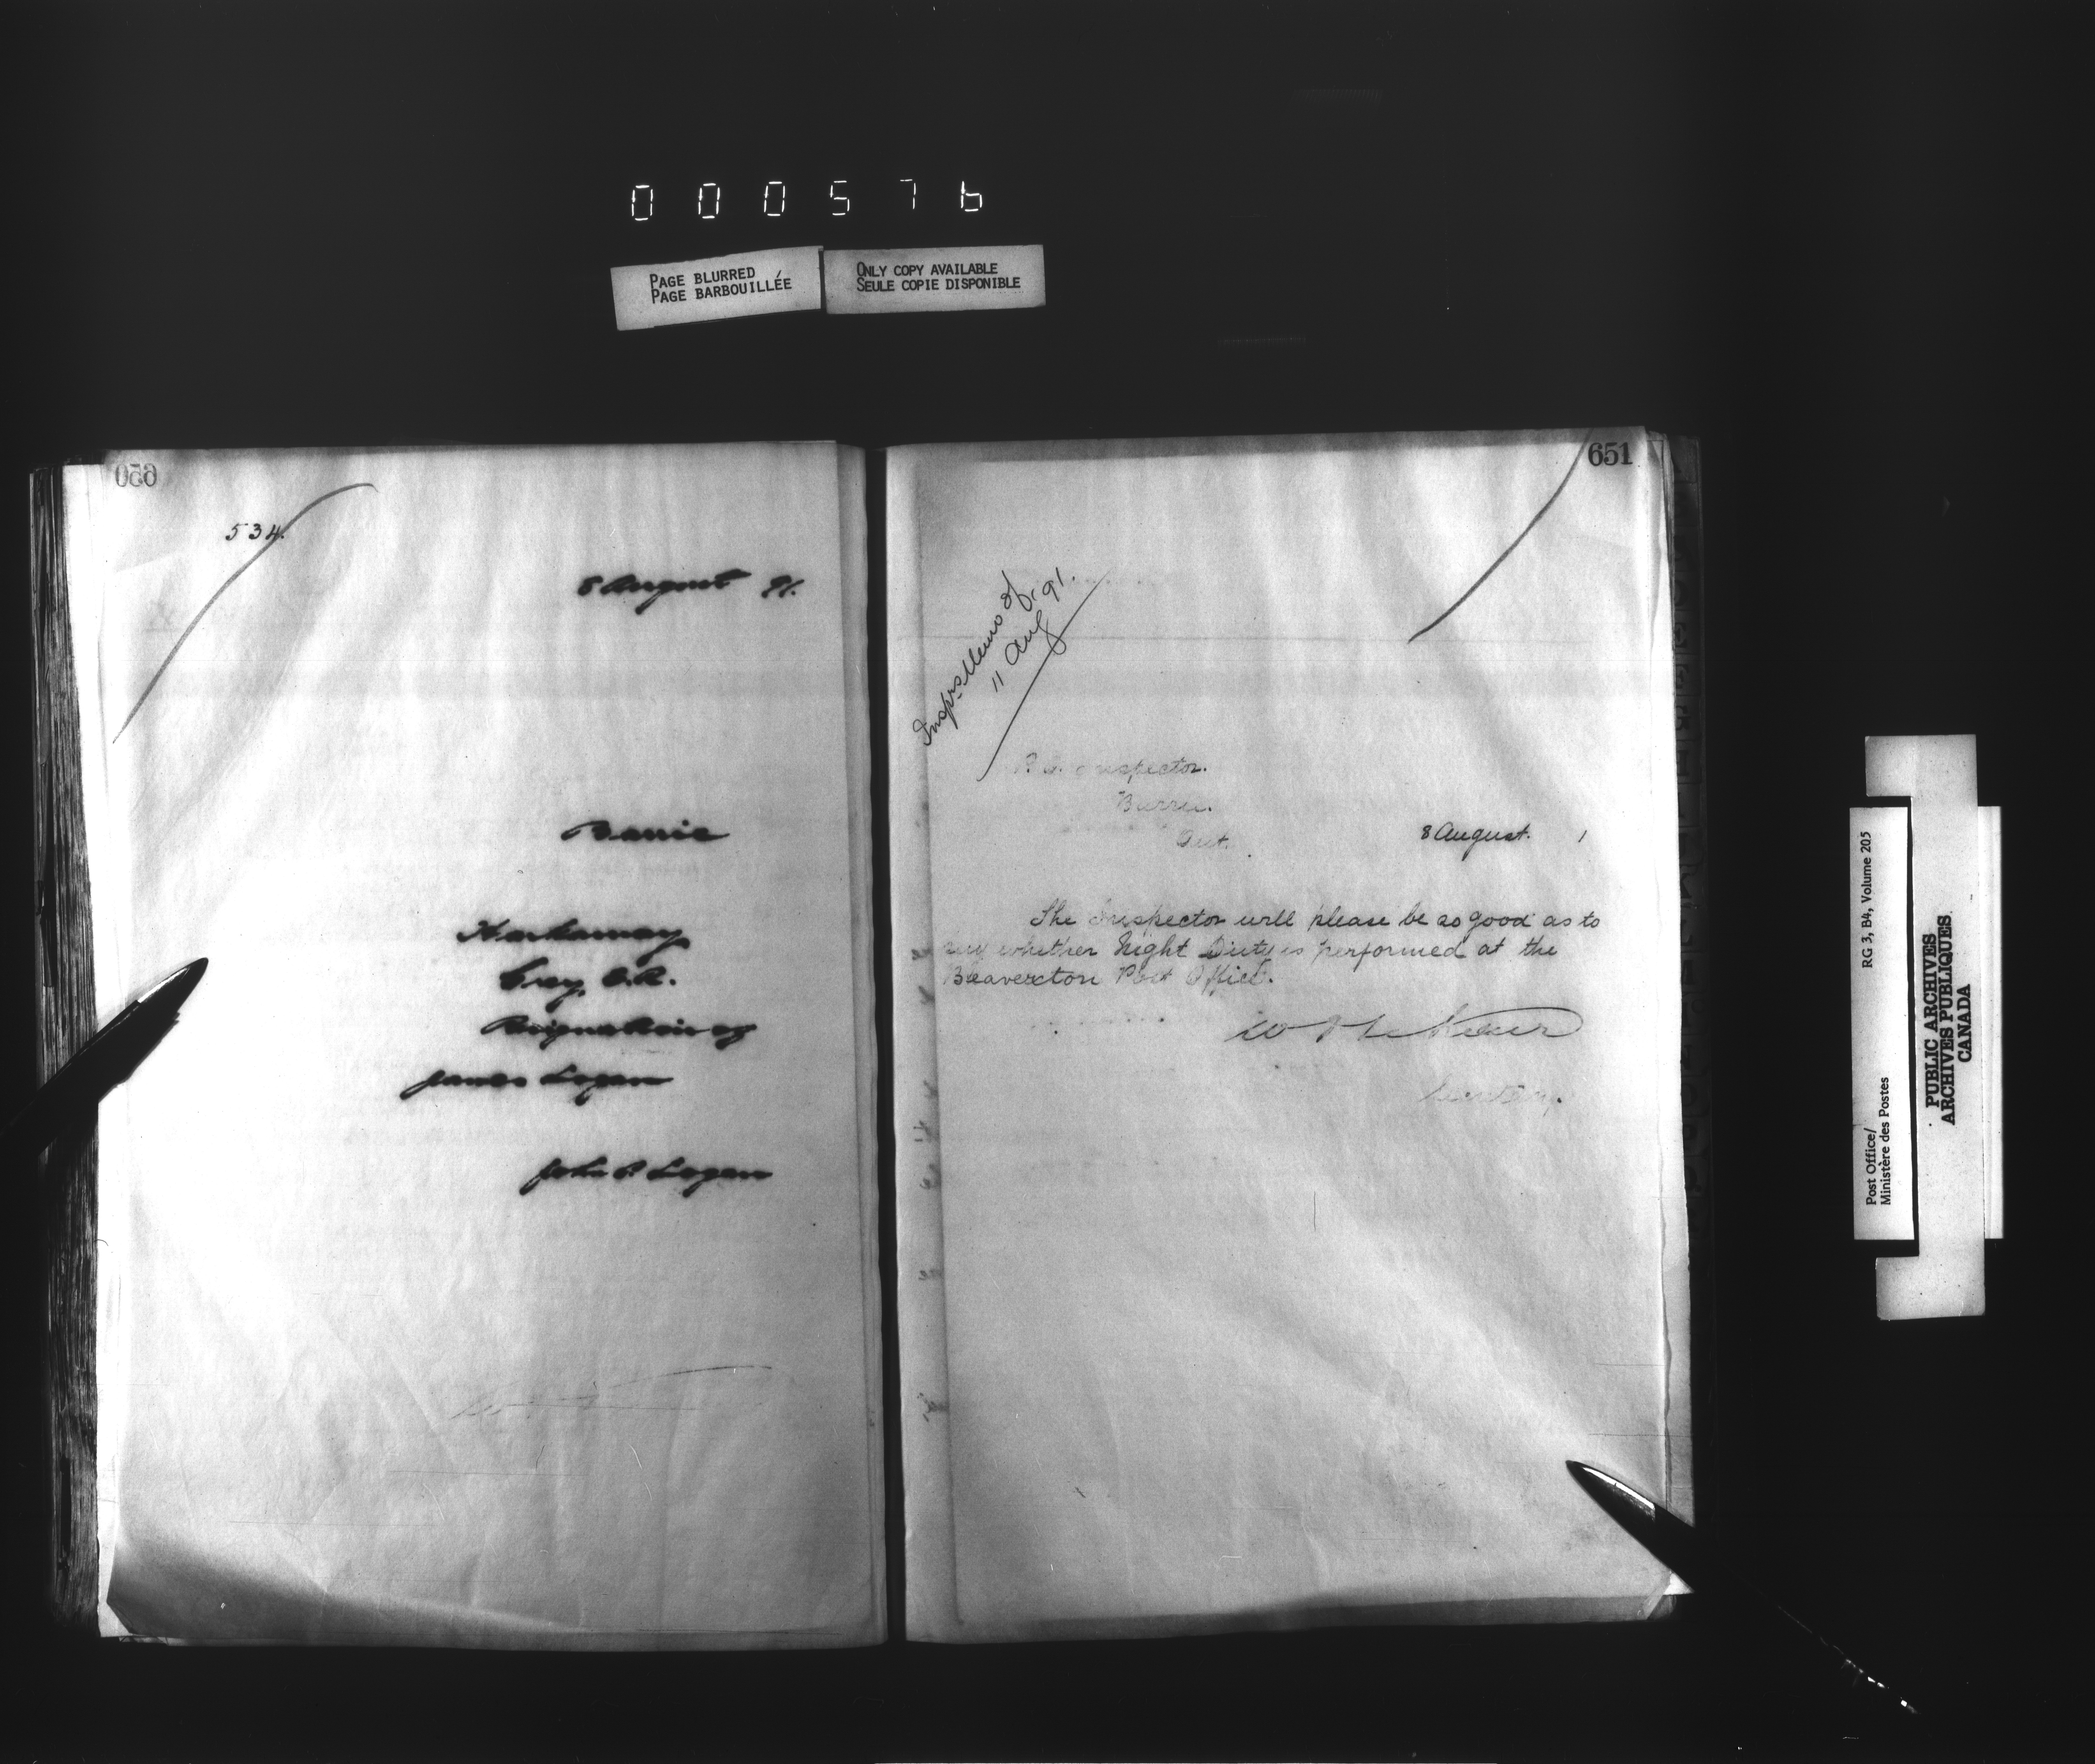 000576
PAGE BLURRED
PAGE BARBOUILLÉE
ONLY COPY AVAILABLE
SEULE COPIE DISPONIBLE
650
534.
8 August 91.
Barrie
Harkaway
Grey, E.R.
Resignation of
James Logan
John P. Logan
651
Insprs Memo of
11 Aug. 91.
P.O. Inspector.
Barrie.
Ont.
8 August. 1
The Inspector will please be so good as to
say whether Night Duty is performed at the
Beaverton Post Office.
Secretary.
Post Office/
Ministère des Postes
RG 3, B4, Volume 205
PUBLIC ARCHIVES
ARCHIVES PUBLIQUES
CANADA